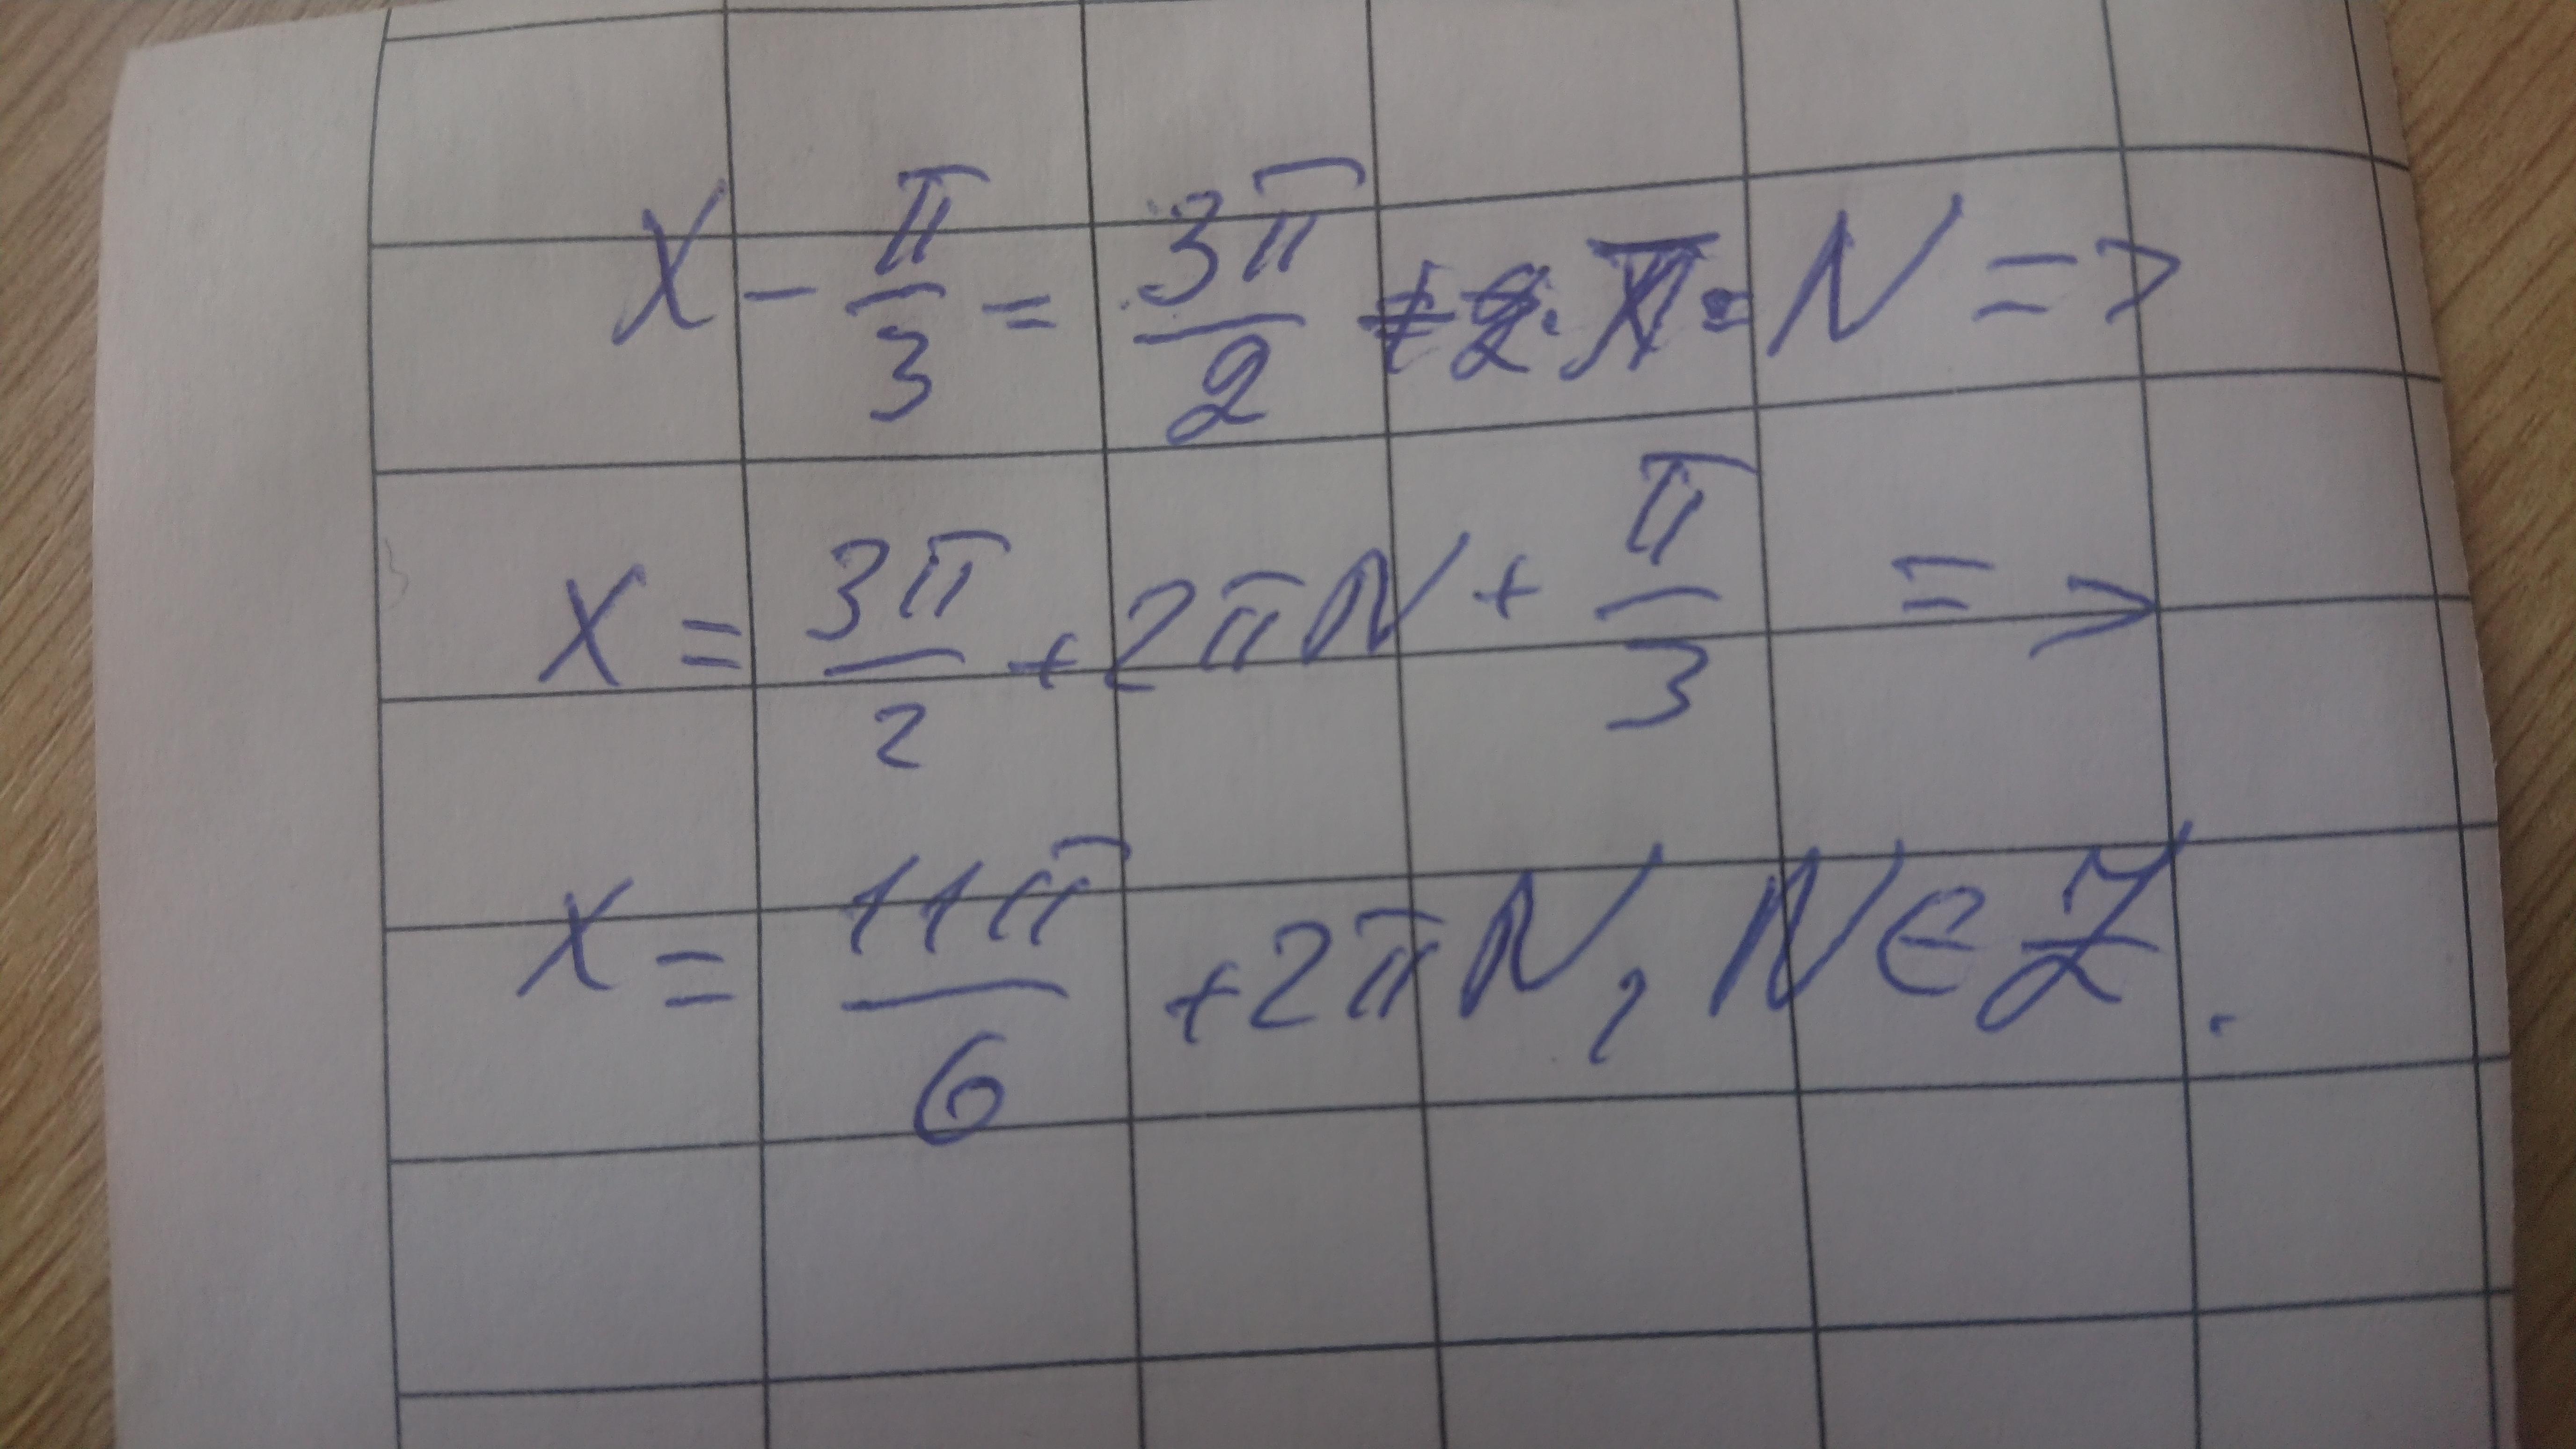 x - π/3 = 3π/2 + 2·π·N =>
x = 3π/2 + 2πN + π/3 =>
x = 11π/6 + 2πN, N∈Z.